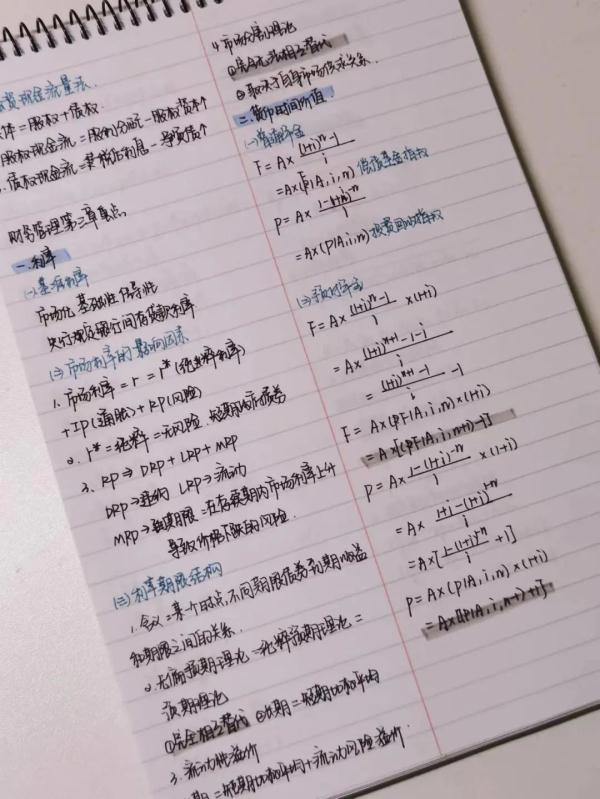 资现金流量法
体=股权+债权
股权现金流=股利分配-股权资本
债权现金流=
财务管理第三章重点
一、利率
㈠基准利率
市场化 基础性 传导性
央行规定银行间存贷款利率
㈡市场利率的影响因素
1. 市场利率=r=r*(纯粹利率)
+IP(通胀)+RP(风险)
2. r*=纯粹=无风险.短期政府债券
3. RP⇒DRP+LRP+MRP
DRP⇒违约 LRP⇒流动
MRP⇒到期期限=在存续期内市场利率上升
导致价格下跌的风险.
㈢利率期限结构
1. 含义=某个时点,不同期限债券到期收益
和期限之间的关系.
2. 无偏预期理论=纯粹预期理论=
预期理论
①完全相互替代 ②长期=短期 平均
3. 流动性溢价
期=短期 平均+流动风险溢价.
4. 市场分割理论
①完全无法相互替代
②取决于自身市场供求关系.
二、货币时间价值
㈠普通年金
F=A×\frac{(1+i)^n-1}{i}
=A×(F|A,i,n) 偿债基金
P=A×\frac{1-(1+i)^{-n}}{i}
=A×(P|A,i,n) 投资回收
㈡预付年金
F=A×\frac{(1+i)^n-1}{i}×(1+i)
=A×\frac{(1+i)^{n+1}-1-i}{i}
=\frac{(1+i)^{n+1}}{i}-1
F=A×(F|A,i,n)×(1+i)
=A×[(F|A,i,n+1)-1]
P=A×\frac{1-(1+i)^{-n}}{i}×(1+i)
=A×\frac{1+i-(1+i)^{1-n}}{i}
P=A×(P|A,i,n)×(1+i)
=A×[(P|A,i,n-1)+1]